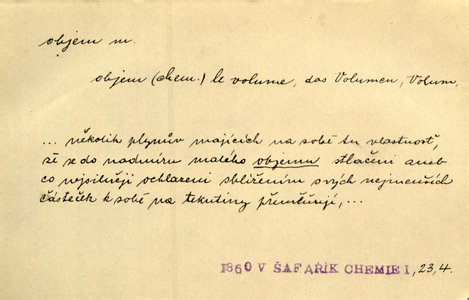 objem m.
objem (chem.) le volume, das Volumen, Volum,
... několik plynův majících na sobě tu vlastnosť,
že se do nadmíru malého objemu stlačeni aneb
co nejsilněji ochlazeni sblížením svých nejmenších
částeček k sobě na tekutiny přeměňují, ...
1860 V ŠAFAŘÍK CHEMIE I, 23,4.